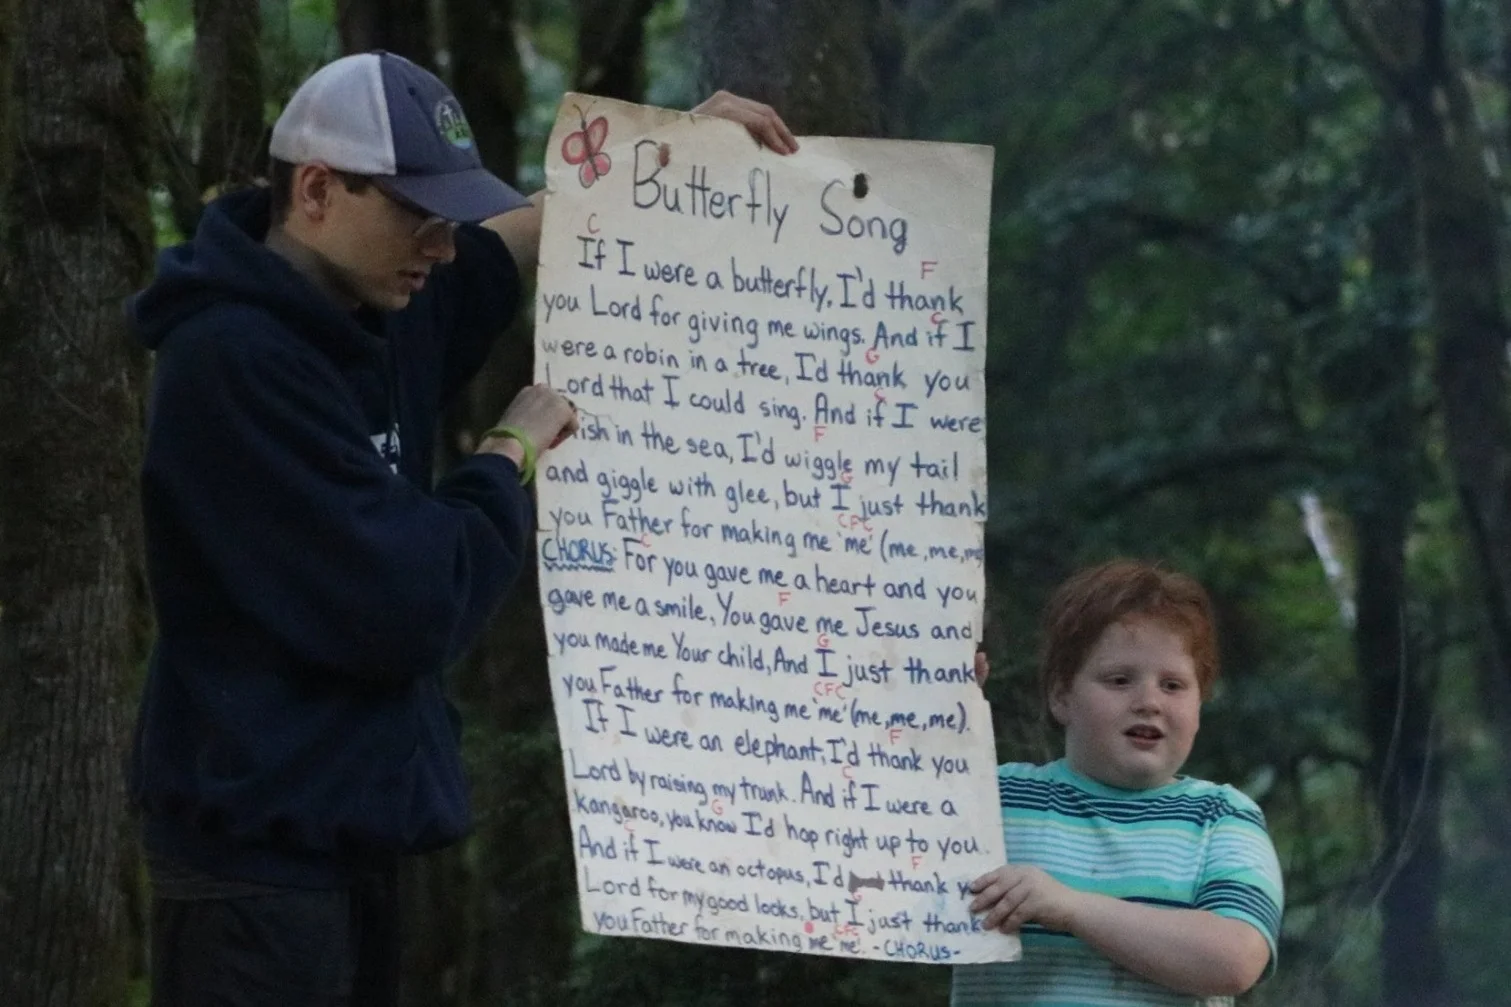 Butterfly Song
C
If I were a butterfly, I'd thank
F
you Lord for giving me wings. And if I
C
were a robin in a tree, I'd thank you
G
Lord that I could sing. And if I were
C
fish in the sea, I'd wiggle my tail
F
and giggle with glee, but I just thank
G
you Father for making me 'me' (me, me, me
CFC
CHORUS: For you gave me a heart and you
C
gave me a smile, You gave me Jesus and
F
you made me Your child, And I just thank
G
you Father for making me 'me' (me, me, me).
CFC
If I were an elephant, I'd thank you
F
Lord by raising my trunk. And if I were a
C
kangaroo, you know I'd hop right up to you.
G
And if I were an octopus, I'd thank y
C
F
Lord for my good looks, but I just thank
G
you Father for making me 'me'. -CHORUS-
CFC